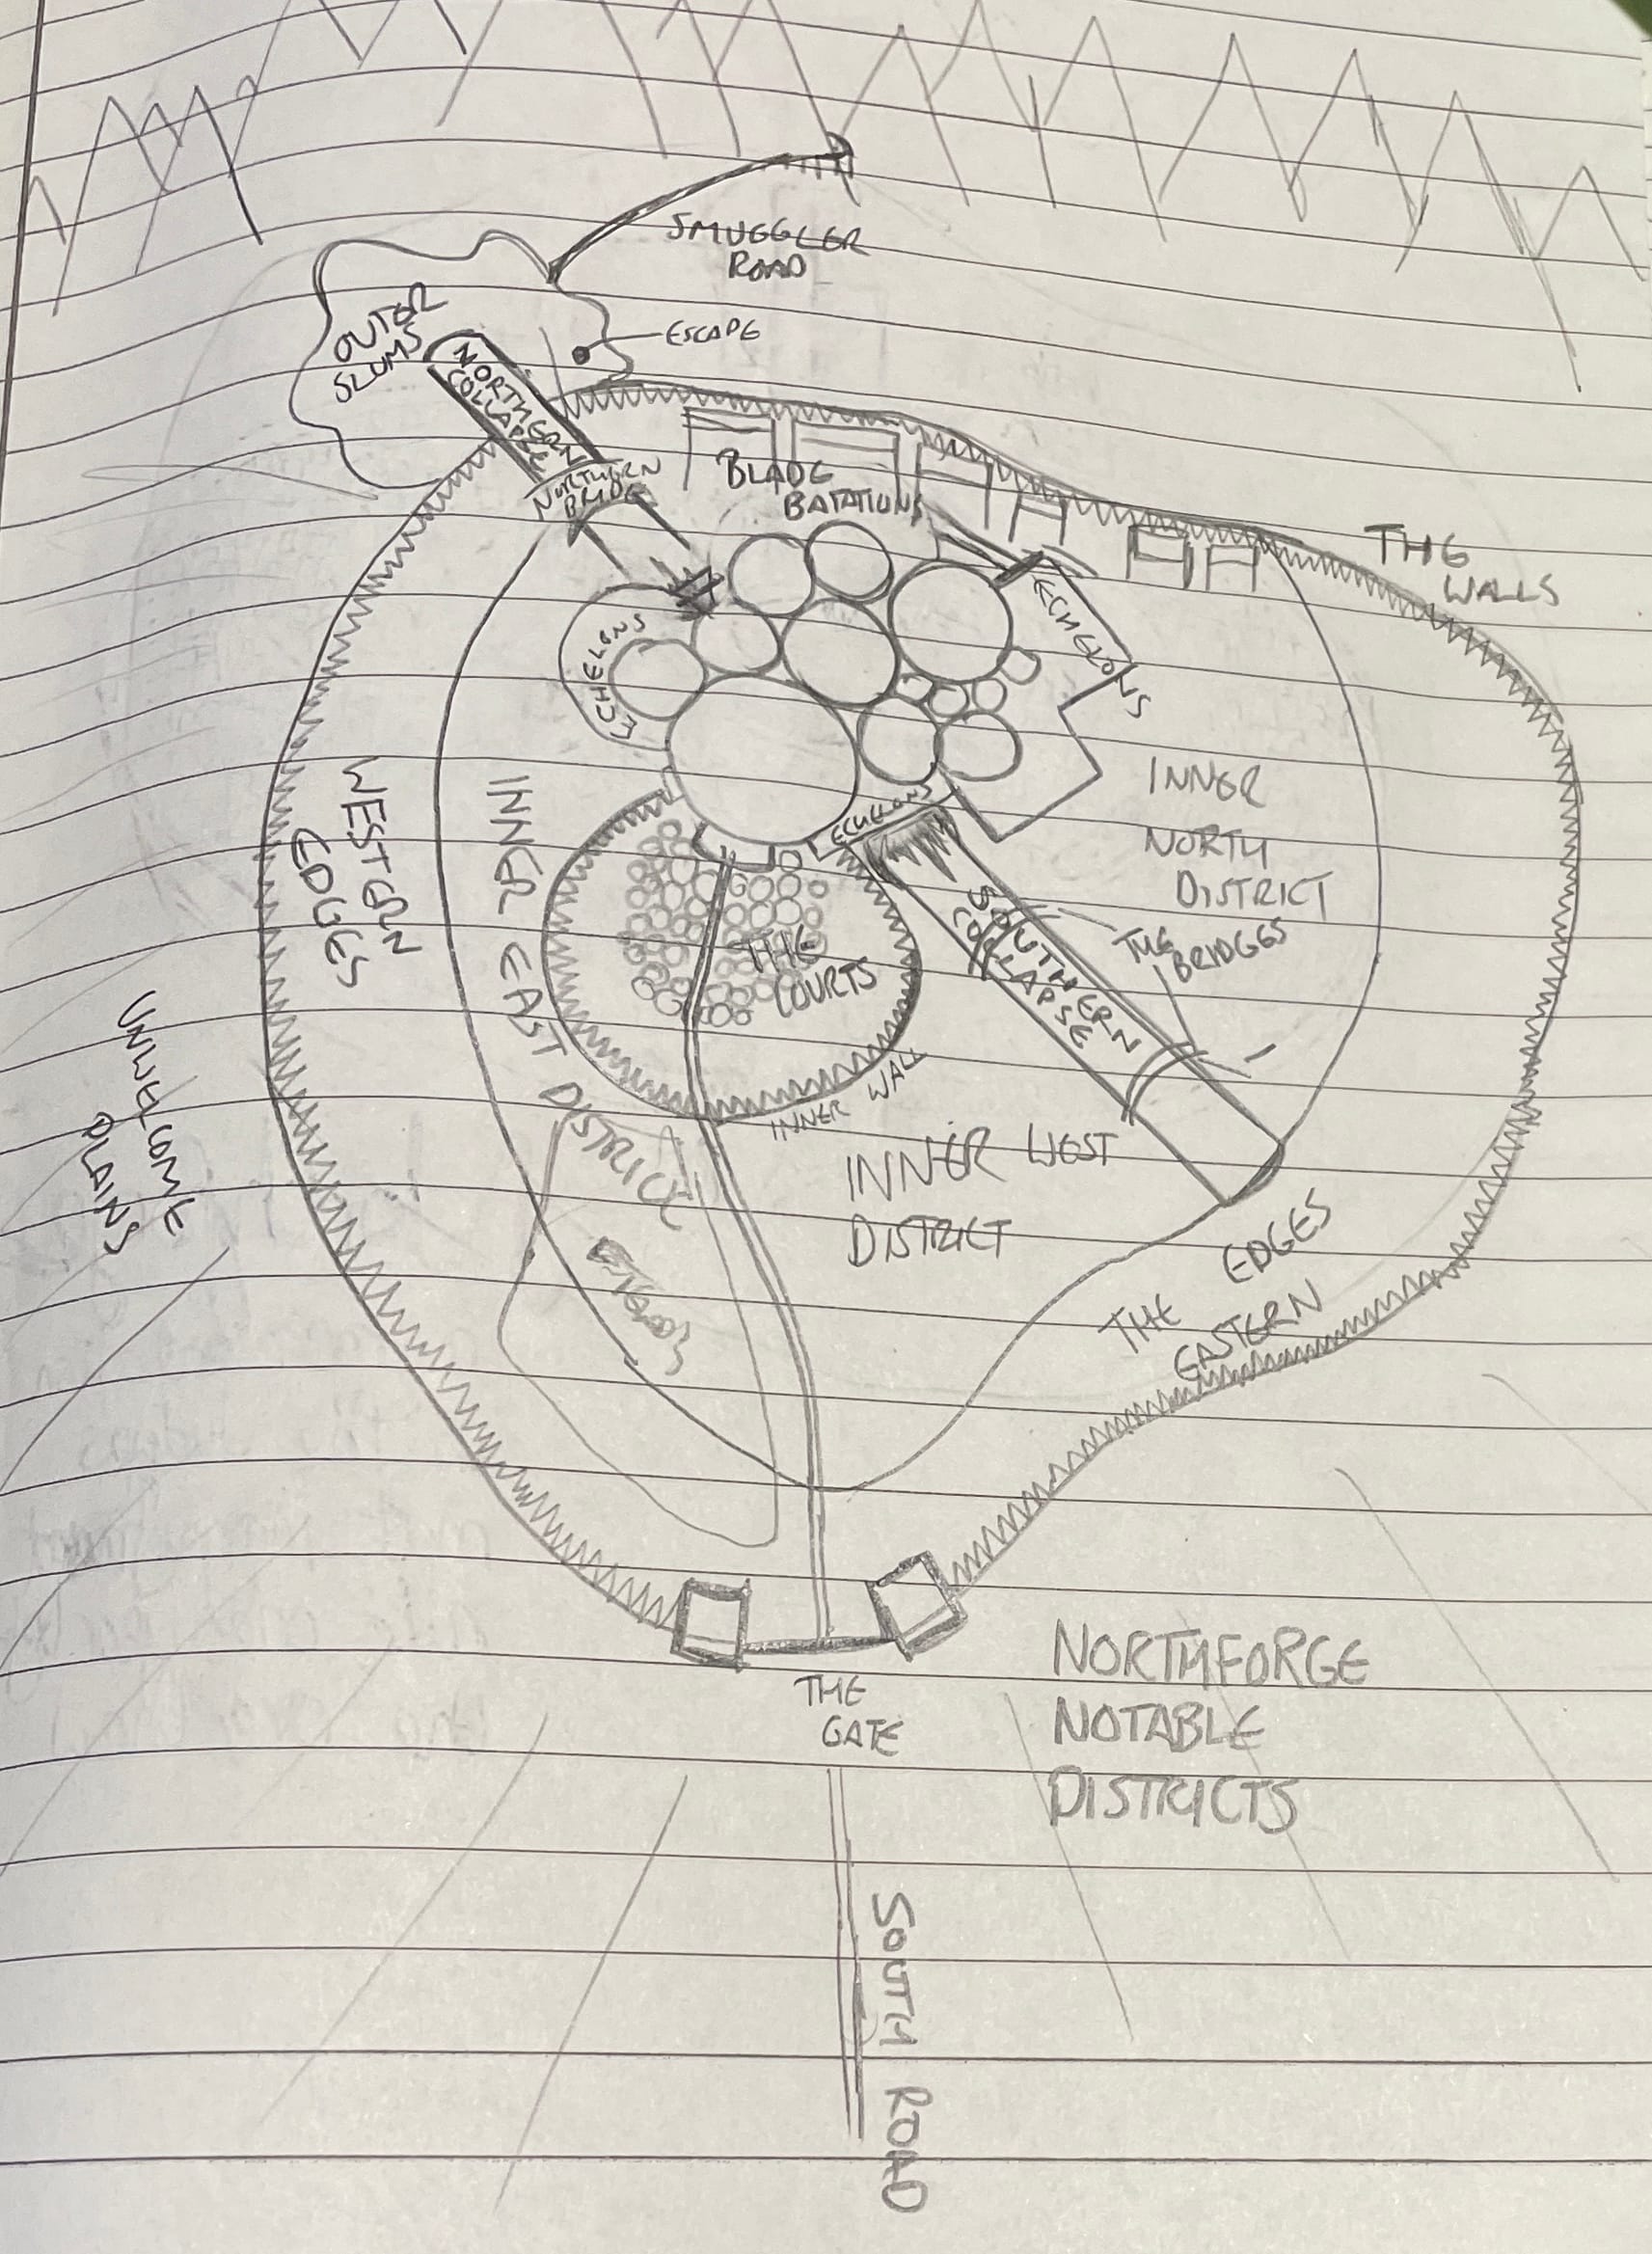 SMUGGLER
ROAD
OUTER
SLUMS
ESCAPE
NORTHERN
COLLAPSE
NORTHERN
BRIDGE
BLADE
BATATIONS
THE
WALLS
ECHELONS
ECHELONS
ECHELONS
INNER
NORTH
DISTRICT
WESTERN
EDGES
INNER EAST DISTRICT
THE
COURTS
SOUTHERN
COLLAPSE
THE
BRIDGES
UNWELCOME
PLAINS
INNER WALL
INNER WEST
DISTRICT
THE EDGES
EASTERN
THE
GATE
NORTHFORGE
NOTABLE
DISTRICTS
SOUTH ROAD